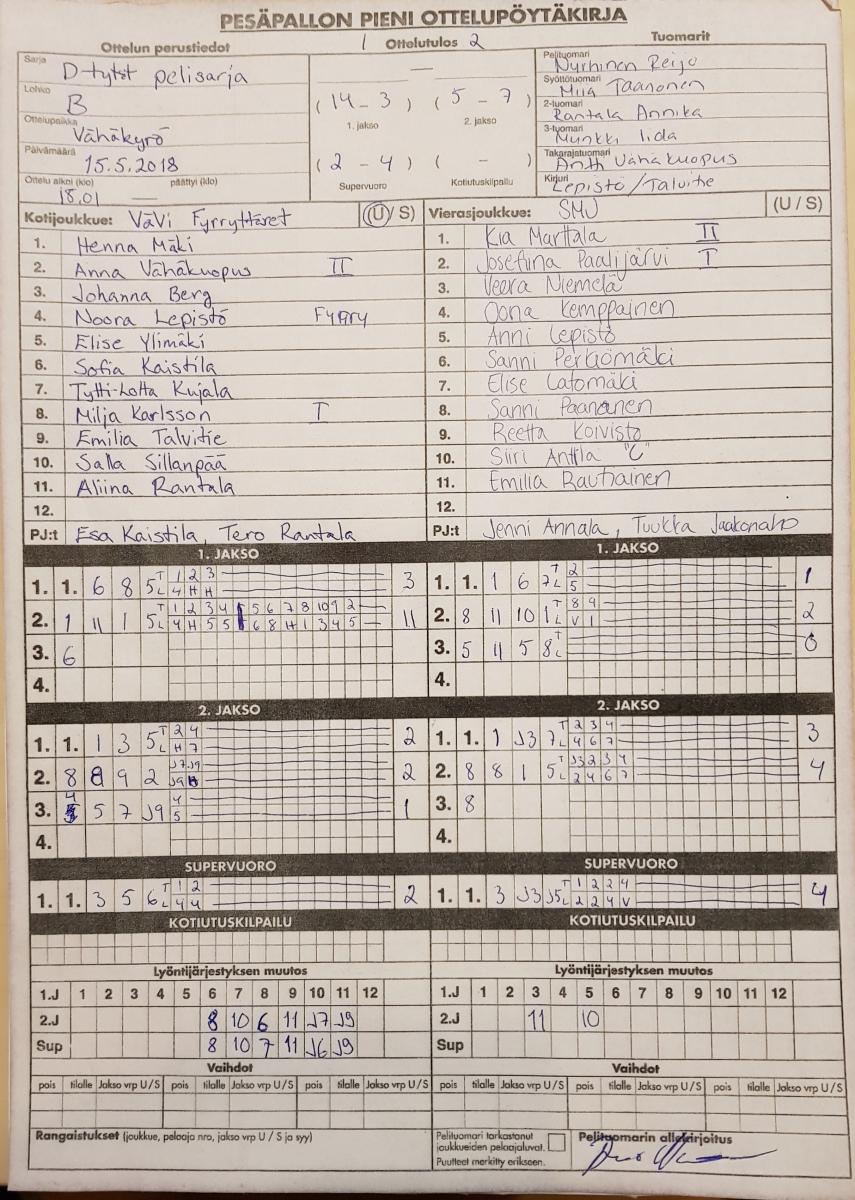 PESÄPALLON PIENI OTTELUPÖYTÄKIRJA
Ottelun perustiedot
Sarja D-tytöt pelisarja
Lohko B
Ottelupaikka Vähäkyrö
Päivämäärä 15.5.2018
Ottelu alkoi (klo) päättyi (klo)
18.01 —
1 Ottelutulos 2
—
(14 - 3) (5 - 7)
1. jakso 2. jakso
(2 - 4) ( - )
Supervuoro Kotiutuskilpailu
Tuomarit
Pelituomari Nyrhinen Reijo
Syöttötuomari Miia Taanonen
2-tuomari Rantala Annika
3-tuomari Munkki Iida
Takarajatuomari Antti Vähäkuopus
Kirjuri Lepistö/Talvitie
Kotijoukkue: VäVi Fyrryttäret (U/S)
1. Henna Mäki
2. Anna Vähäkuopus II
3. Johanna Berg
4. Noora Lepistö Fyrry
5. Elise Ylimäki
6. Sofia Kaistila
7. Tytti-Lotta Kujala
8. Milja Karlsson I
9. Emilia Talvitie
10. Salla Sillanpää
11. Aliina Rantala
12.
PJ:t Esa Kaistila, Tero Rantala
Vierasjoukkue: SMJ (U/S)
1. Kia Marttala II
2. Josefiina Paalijärvi I
3. Veera Niemelä
4. Oona Kemppainen
5. Anni Lepistö
6. Sanni Perkiömäki
7. Elise Latomäki
8. Sanni Paananen
9. Reetta Koivisto
10. Siiri Anttila "C"
11. Emilia Rautiainen
12.
PJ:t Jenni Annala, Tuukka Jaakonaho
1. JAKSO
1. 1. 6 8 5 T 1 2 3
L 4 H H 3
2. 1 11 1 5 T 1 2 3 4 5 6 7 8 10 9 2
L 4 H 5 5 6 8 H 1 3 4 5 11
3. 6
4.
1. JAKSO
1. 1. 1 6 7 T 2
L 5 1
2. 8 11 10 1 T 8 9
L V 1 2
3. 5 11 5 8 T
L 0
4.
2. JAKSO
1. 1. 1 3 5 T 2 4
L H 7 2
2. 8 8 9 2 J7 J9
J9 8 2
3. 4 5 7 J9 4
5 1
4.
2. JAKSO
1. 1. 1 J3 7 T 2 3 4
L 4 6 7 3
2. 8 8 1 5 T J3 2 3 4
L 2 4 6 7 4
3. 8
4.
SUPERVUORO
1. 1. 3 5 6 T 1 2
L 4 4 2
SUPERVUORO
1. 1. 3 J3 J5 T 1 2 2 4
L 2 2 4 V 4
KOTIUTUSKILPAILU
KOTIUTUSKILPAILU
Lyöntijärjestyksen muutos
1.J 1 2 3 4 5 6 7 8 9 10 11 12
2.J 8 10 6 11 J7 J9
Sup 8 10 7 11 J6 J9
Lyöntijärjestyksen muutos
1.J 1 2 3 4 5 6 7 8 9 10 11 12
2.J 11 10
Sup
Vaihdot
pois tilalle Jakso vrp U/S pois tilalle Jakso vrp U/S pois tilalle Jakso vrp U/S
Vaihdot
pois tilalle Jakso vrp U/S pois tilalle Jakso vrp U/S pois tilalle Jakso vrp U/S
Rangaistukset (joukkue, pelaaja nro, jakso vrp U / S ja syy)
Pelituomari tarkastanut
joukkueiden pelaajaluvat.
Puutteet merkitty erikseen.
Pelituomarin allekirjoitus